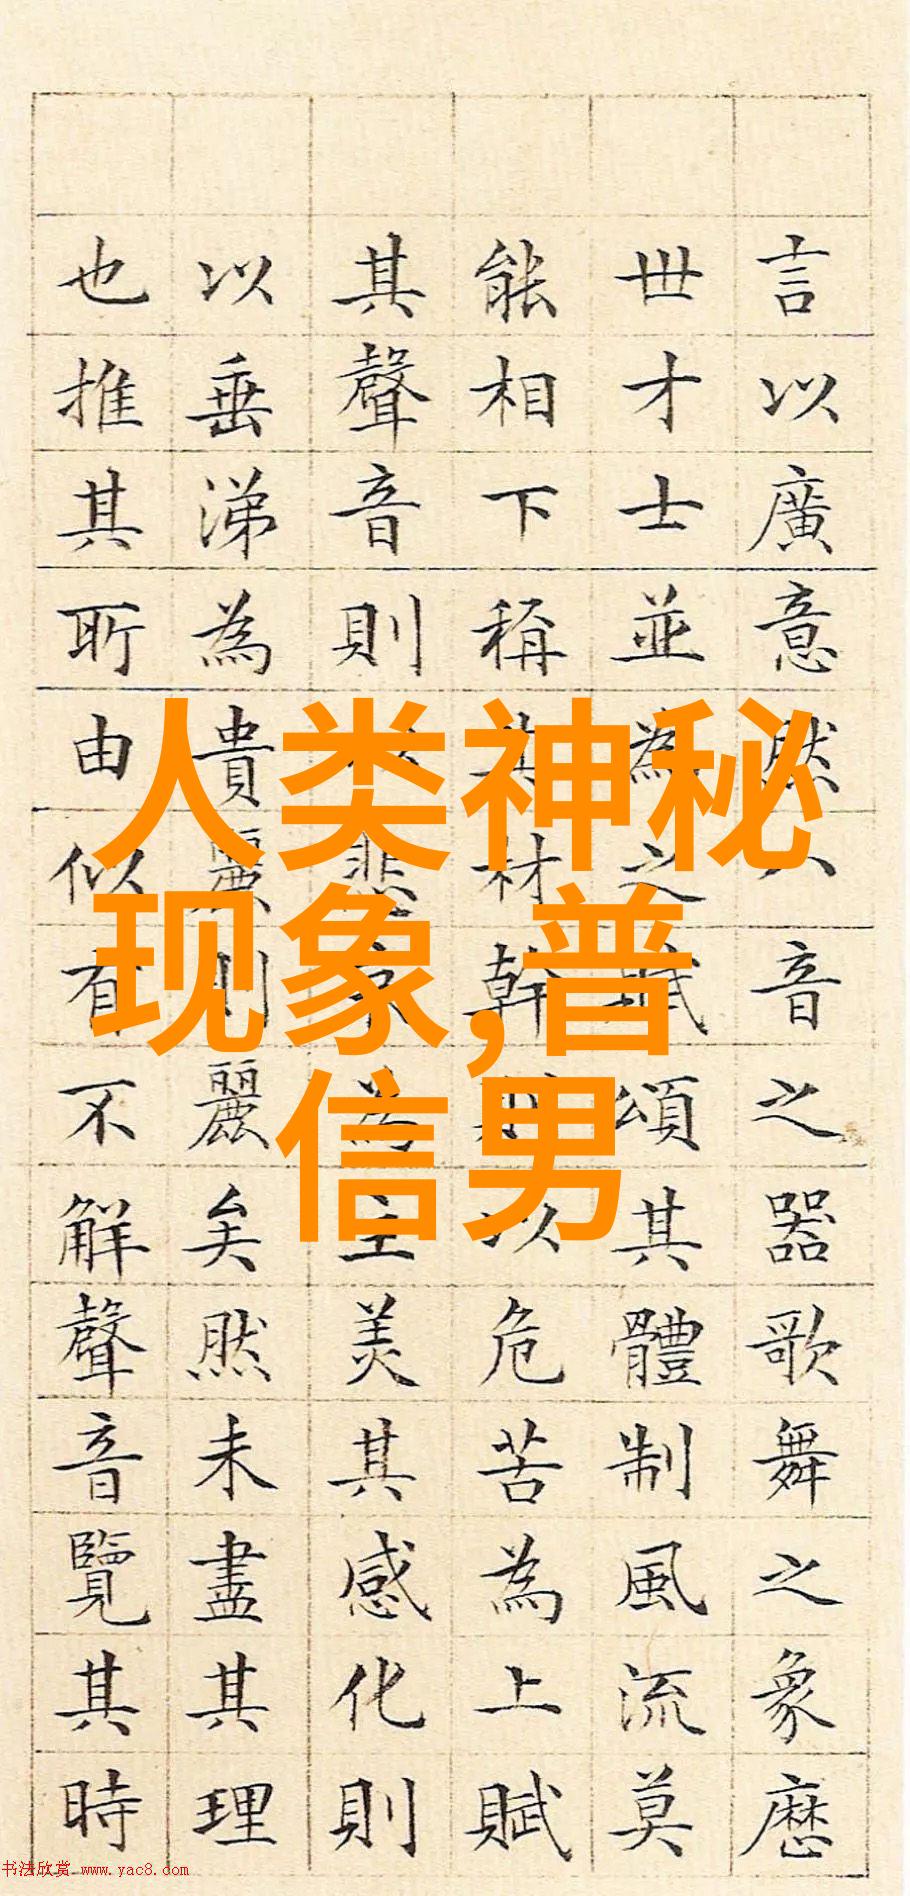 言以廣意然八音之器歌舞之象歷
世才士並為之賦頌其體制風流莫
能相下稱其材幹則以危苦為上賦
其聲音則以悲哀為主美其感化則
以垂涕為貴麗則麗矣然未盡其理
也推其所由似有不解聲音覽其時
人类神秘
现象,普
信男
书法欣赏 www.yac8.com